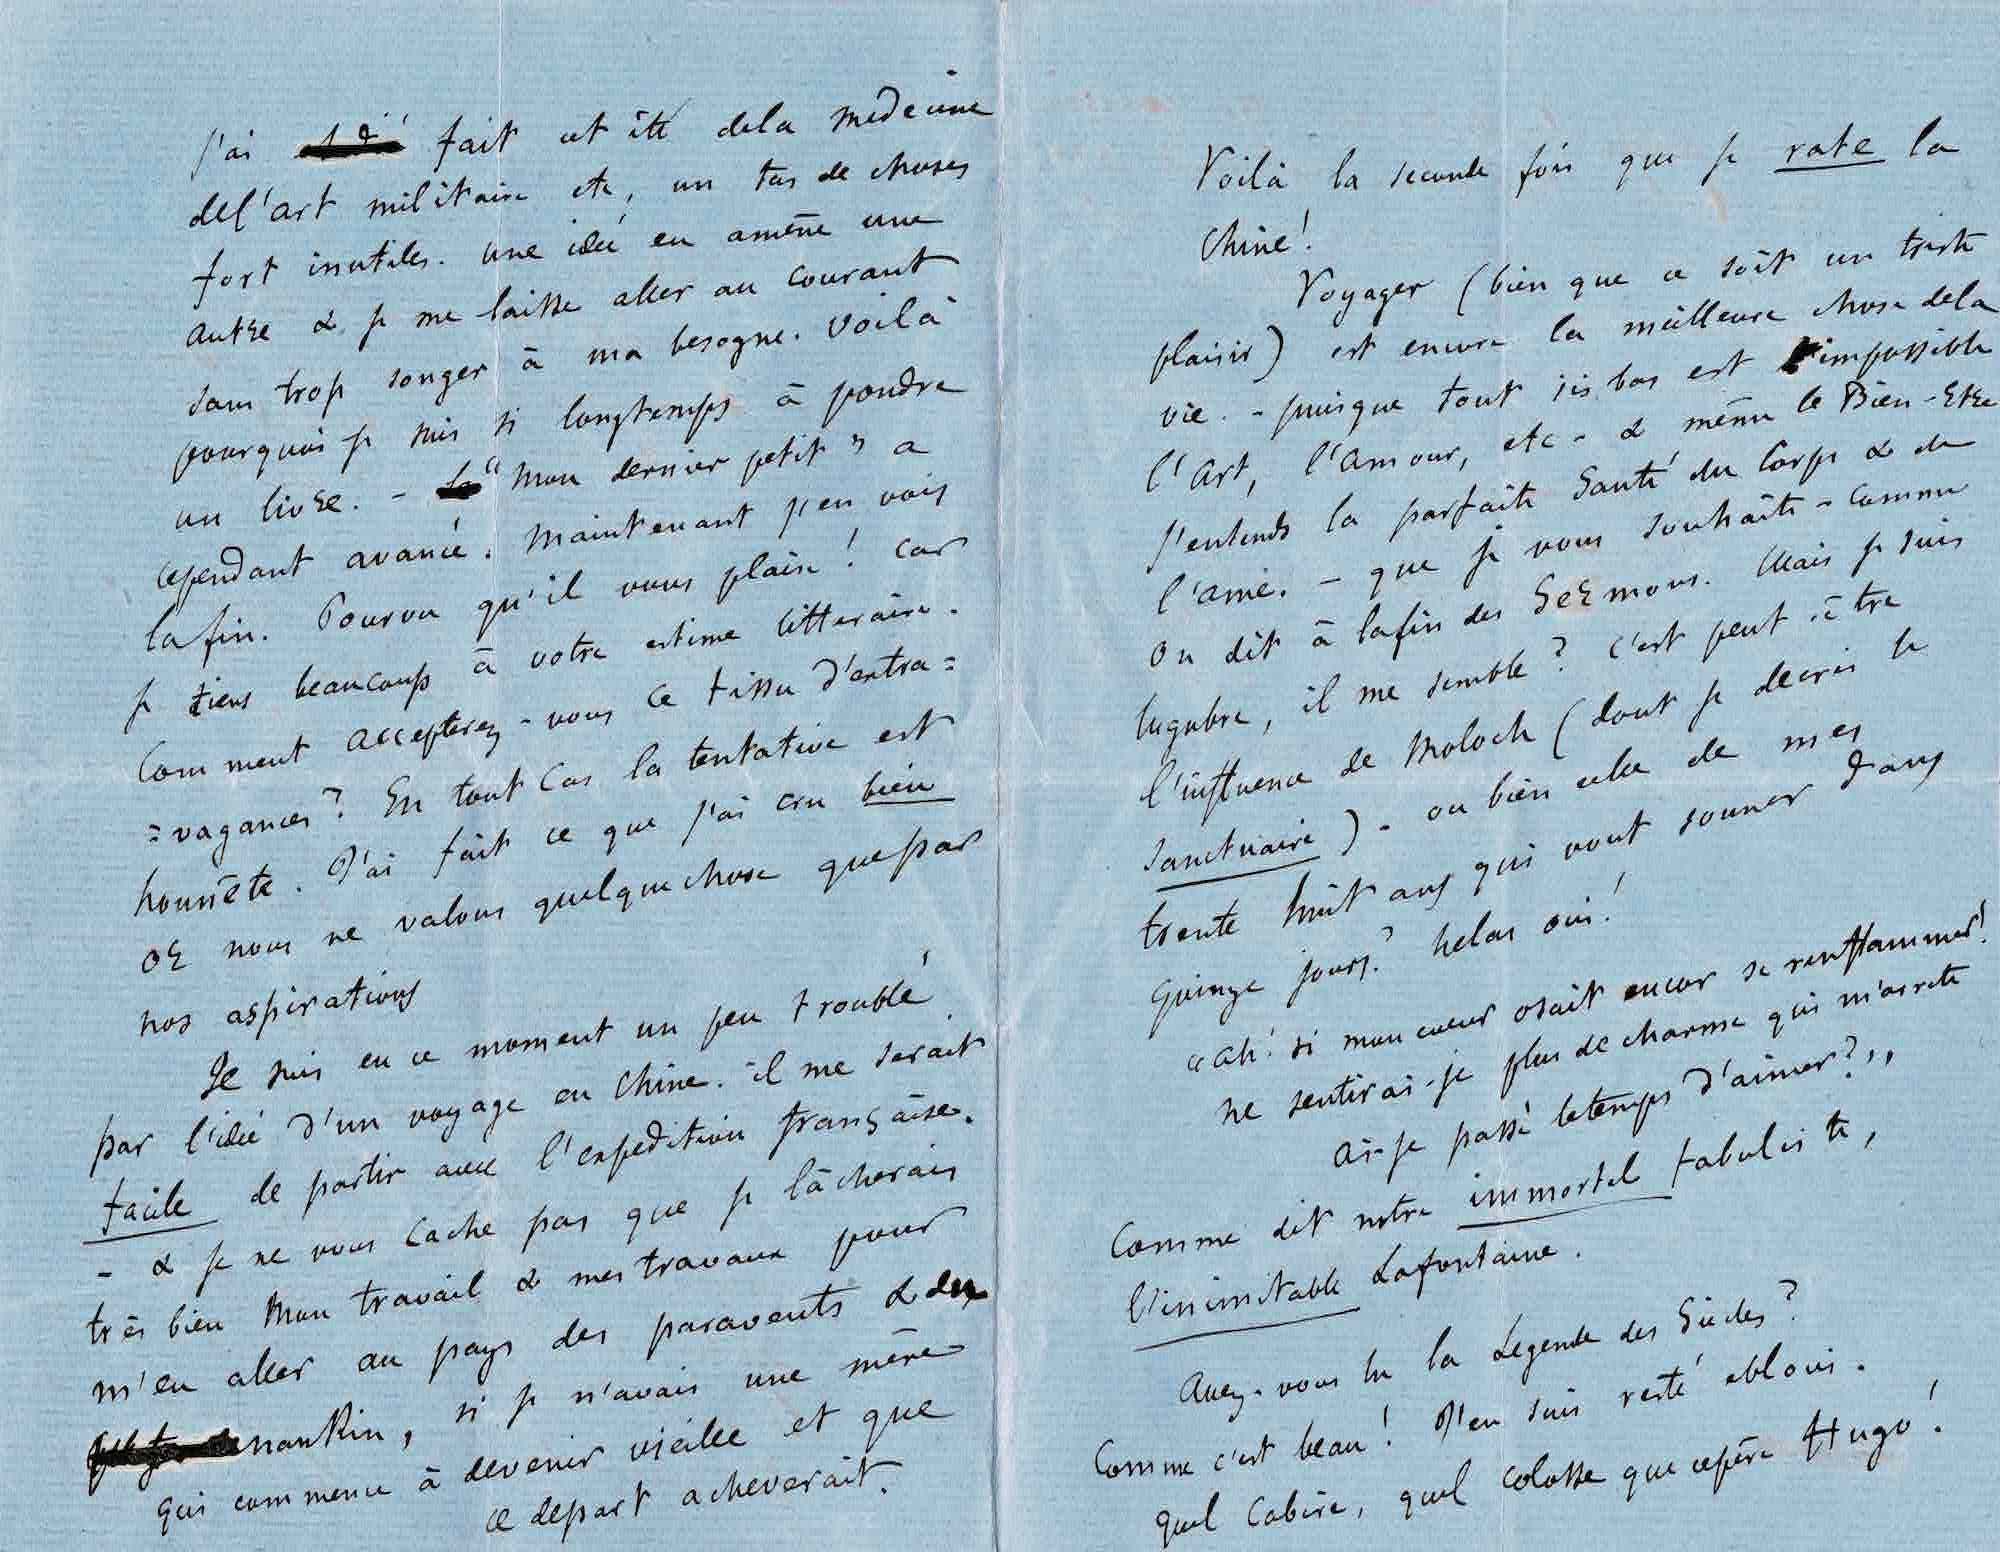 J'ai fait cet été dela medecine
del'art militaire etc, un tas de choses
fort inutiles. une idée en amène une
autre & je me laisse aller au courant
sans trop songer à ma besogne. voilà
pourquoi je suis si longtemps à pondre
un livre. - "mon dernier petit" a
cependant avancé. Maintenant j'en vois
lafin. Pourvu qu'il vous plaise! car
je tiens beaucoup à votre estime litteraire.
Comment accepterez-vous ce tissu d'extra=
=vagances? En tout cas la tentative est
honnête. J'ai fait ce que j'ai cru bien
or nous ne valons quelquechose quepar
nos aspirations
Je suis en ce moment un peu troublé
par l'idée d'un voyage en Chine. il me serait
facile de partir avec l'expedition française.
- & je ne vous cache pas que je lâcherais
très bien mon travail & mes travaux pour
m'en aller au pays des paravents & du
nankin, si je n'avais une mère
qui commence à devenir vieille et que
ce depart acheverait.
Voilà la seconde fois que je rate la
Chine!
Voyager (bien que ce soit un triste
plaisir) est encore la meilleure chose dela
vie. - puisque tout ici bas est impossible
l'art, l'amour, etc - & même le Bien-Etre
j'entends la parfaite santé du Corps & de
l'ame. - que je vous souhaite - comme
on dit à lafin des Sermons. Mais je suis
lugubre, il me semble? c'est peut-être
l'influence de Moloch (dont je decris le
sanctuaire) - ou bien celle de mes
trente huit ans qui vont sonner dans
quinze jours? helas oui!
"ah! si mon coeur osait encor se renflammer!
ne sentirai-je plus de charme qui m'arrete
ai-je passé letemps d'aimer?"
Comme dit notre immortel fabuliste,
l'inimitable Lafontaine.
Avez-vous lu la Légende des Siècles?
Comme c'est beau! J'en suis resté ebloui.
quel Cabire, quel colosse que cepère Hugo!